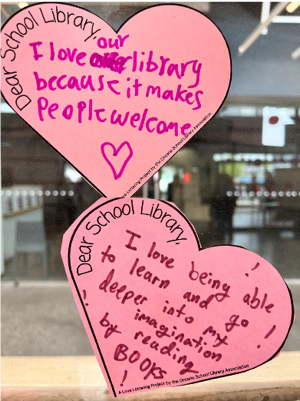 Dear School Library,
I love our library
because it makes
People welcome
A Love Lettering Project by the Ontario School Library Association
Dear School Library,
I love being able
to learn and go
deeper into my
imagination
by reading
BOOKS
!
!
!
A Love Lettering Project by the Ontario School Library Association